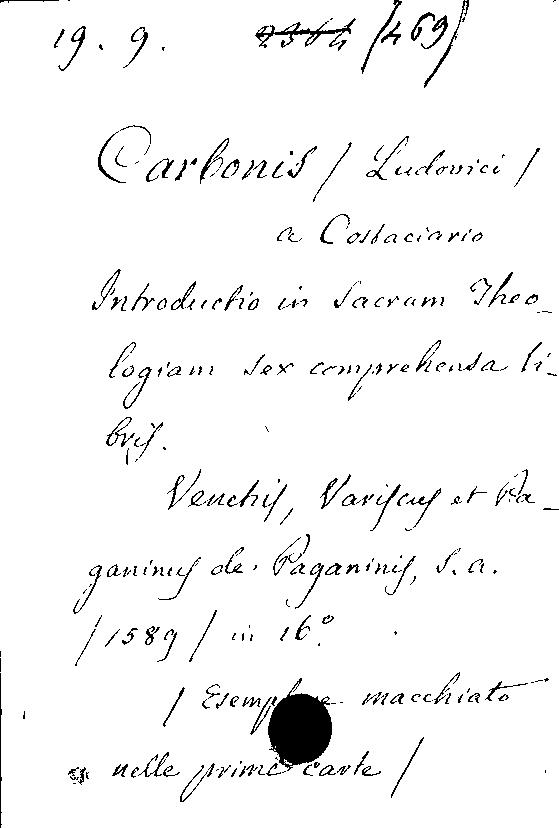 19. 9. 2364 /469/
Carbonis / Ludovici /
a Costaciario
Introductio in Sacram Theo_
logiam sex comprehensa li_
bris.
Venetiis, Variscus et Pa_
ganinus de Paganinis, s.a.
/1589/ in 16º.
/ Esemplare macchiato
nelle prime carte /